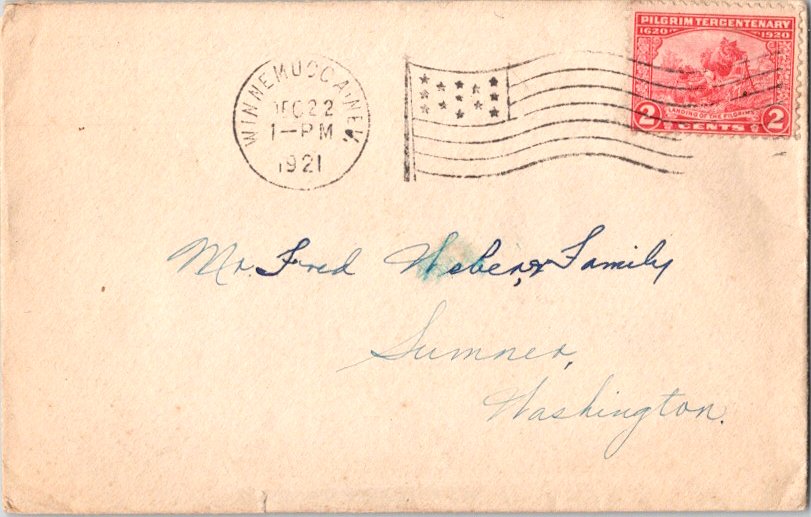 WINNEMUCCA, NEV.
DEC 22
1-PM
1921
PILGRIM TERCENTENARY
1620 1920
LANDING OF THE PILGRIMS
2 CENTS 2
Mr. Fred Weber, & Family
Sumner,
Washington.